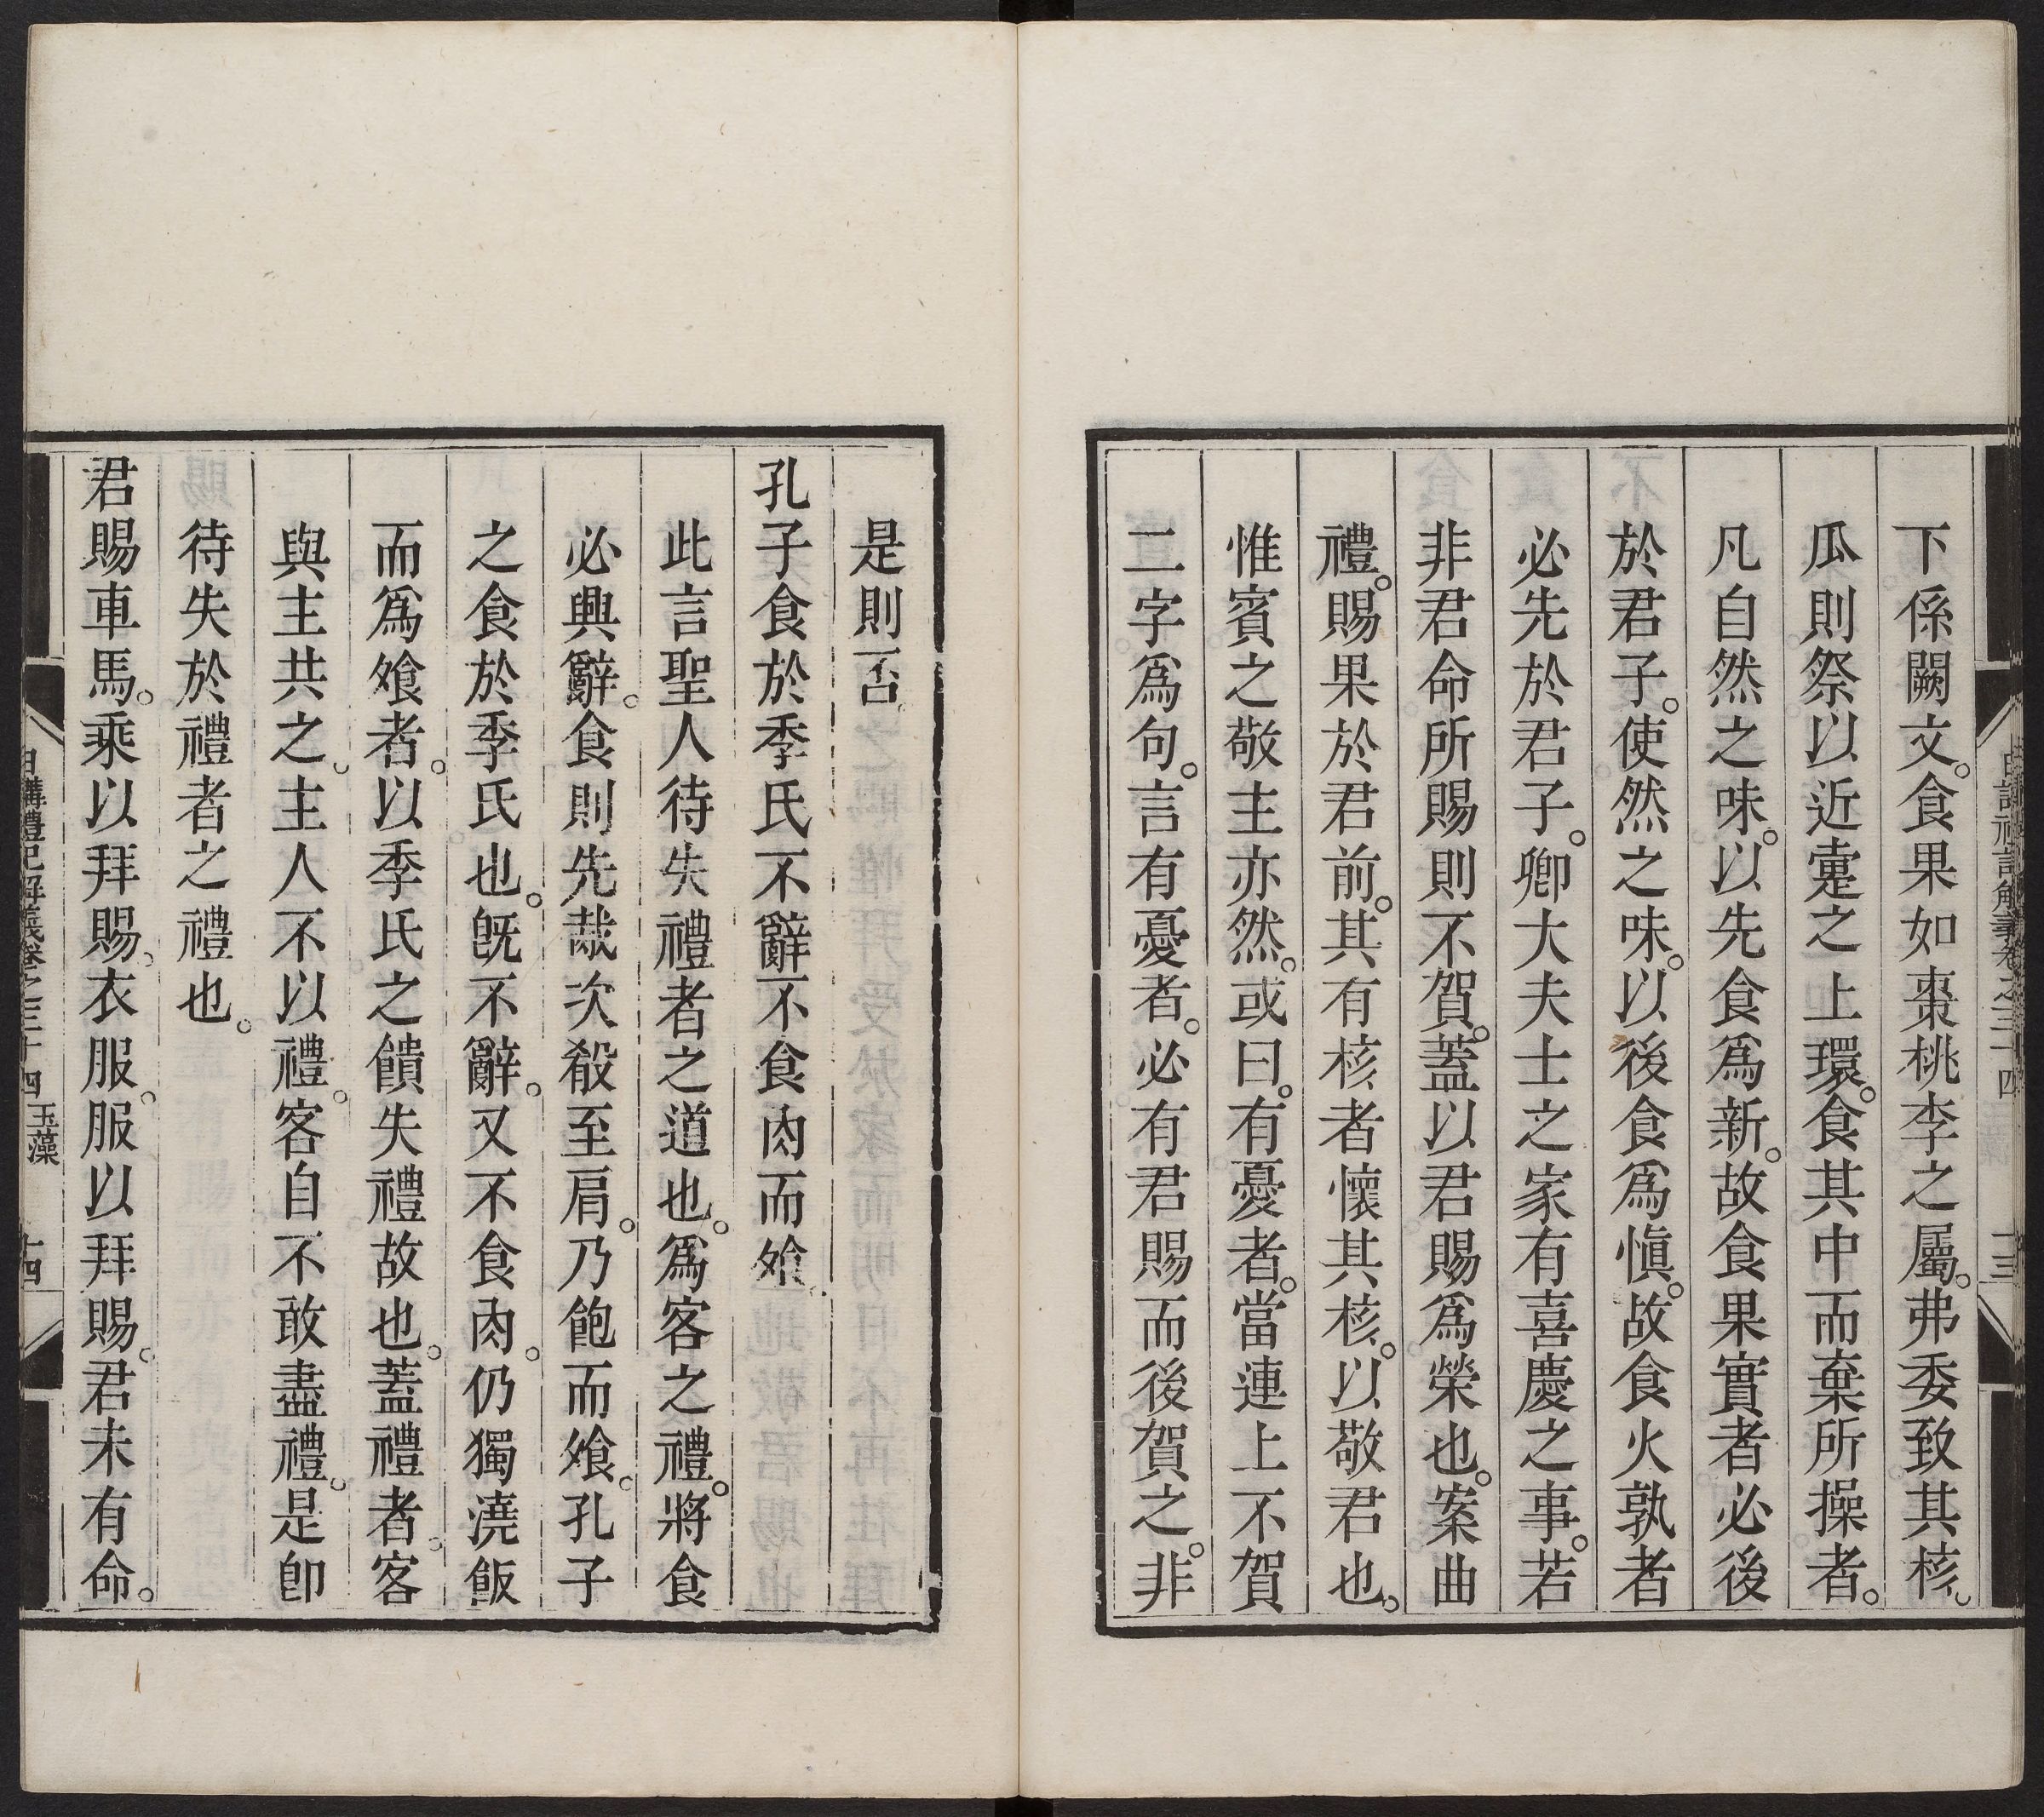 下係闕文。食果如棗桃李之屬。弗委致其核。
瓜則祭以近疐之上環。食其中而棄所操者。
凡自然之味。以先食爲新。故食果實者必後
於君子。使然之味。以後食爲愼。故食火孰者
必先於君子。卿大夫士之家有喜慶之事。若
非君命所賜則不賀。蓋以君賜爲榮也。案曲
禮。賜果於君前。其有核者懷其核。以敬君也。
惟賓之敬主亦然。或曰。有憂者。當連上不賀
二字爲句。言有憂者。必有君賜而後賀之。非
是則否。
孔子食於季氏不辭不食肉而飧。
此言聖人待失禮者之道也。爲客之禮。將食
必興辭。食則先胾次殽至肩。乃飽而飧。孔子
之食於季氏也。旣不辭。又不食肉。仍獨澆飯
而爲飧者。以季氏之饋失禮故也。蓋禮者。客
與主共之。主人不以禮。客自不敢盡禮。是卽
待失於禮者之禮也。
君賜車馬。乘以拜賜。衣服。服以拜賜。君未有命。
日講禮記解義卷之三十四 玉藻 十四